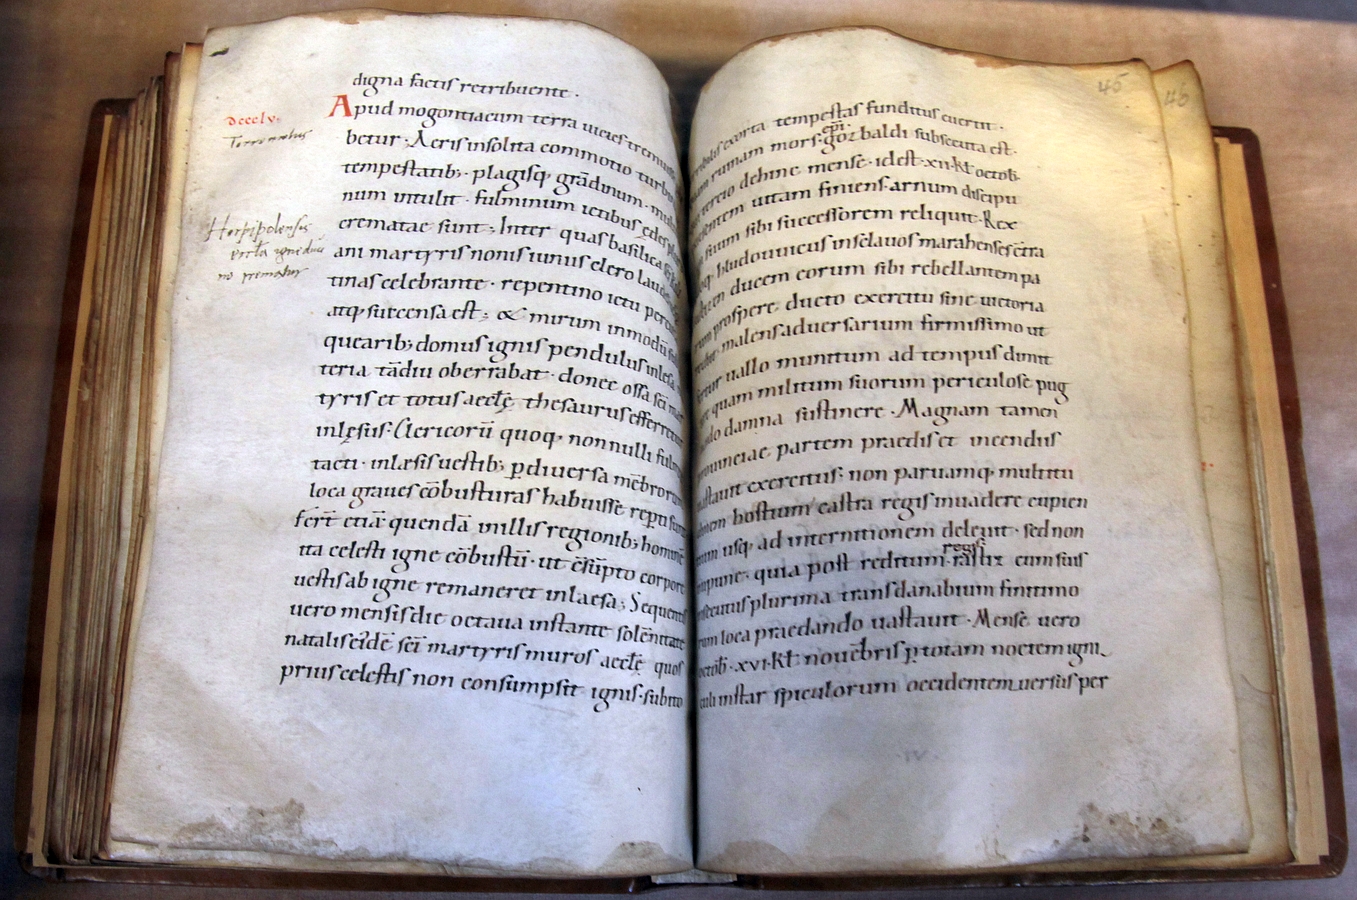 digna factis retribuente ·
dccclv·
Apud mogontiacum terra vicies tremuisse
Terremotus
betur ; Aeris insolita commotio turbi
tempestatib; · plagisq; grãdinum · mul
num intulit · fulminum ictibus ędes plur
Herbipolensis
crematae sunt ; Inter quas basilica sc̄i kyli
ani martyris nonis iunii clero laudes
tinas celebrante · repentino ictu percu
atq; succensa est ; & mirum in modū
quearib; domus ignis pendulus inlesa
teria tādiu oberrabat · donec ossa sc̄i mar
tyris et totus aeccłę thesaurus efferretur
inlęsus · Clericorū quoq; nonnulli fulmine
tacti · inlaesis uestib; p̱ diuersa mēbrorum
loca graues cōbusturas habuisse rep̱ti sunt
fert̄ etiā quendā in illis regionib; hominē
ita celesti igne cōbustū · ut c̄sūpto corpore
uestis ab igne remaneret inlaesa ; Sequentis
vero mensis die octaua instante solēnitate
natalis eidē sc̄i martyris muros aeccłę quos
prius celestis non consumpsit ignis · subito
45
46
exorta tempestas funditus euertit ·
ruinam mors gozbaldi ep̄i subsecuta est ·
tercio dehinc mense · id est · xii · kł octob̄ ·
uitam finiens · arnum discipu
suum sibi successorem reliquit · Rex
q; hludouuicus in sclauos marahenses c̄tra
ducem eorum sibi rebellantem pa
prospere ducto exercitu sine uictoria
malens aduersarium firmissimo ut
fertur uallo munitum ad tempus dimit
quam militum suorum periculose pug
damna sustinere · Magnam tamen
prouinciae partem praedis et incendiis
uastauit exercitus · non paruamq; multitu
dinem hostium castra regis inuadere cupien
tium usq; ad internitionem deleuit · sed non
inpune · quia post reditum regis rastiz cum suis
insecutus plurima trans danubium finitimo
rum loca praedando uastauit · Mense uero
octob̄ · xvi · kł nouēbris p̱ totam noctem igni
culi instar spiculorum occidentem uersus per